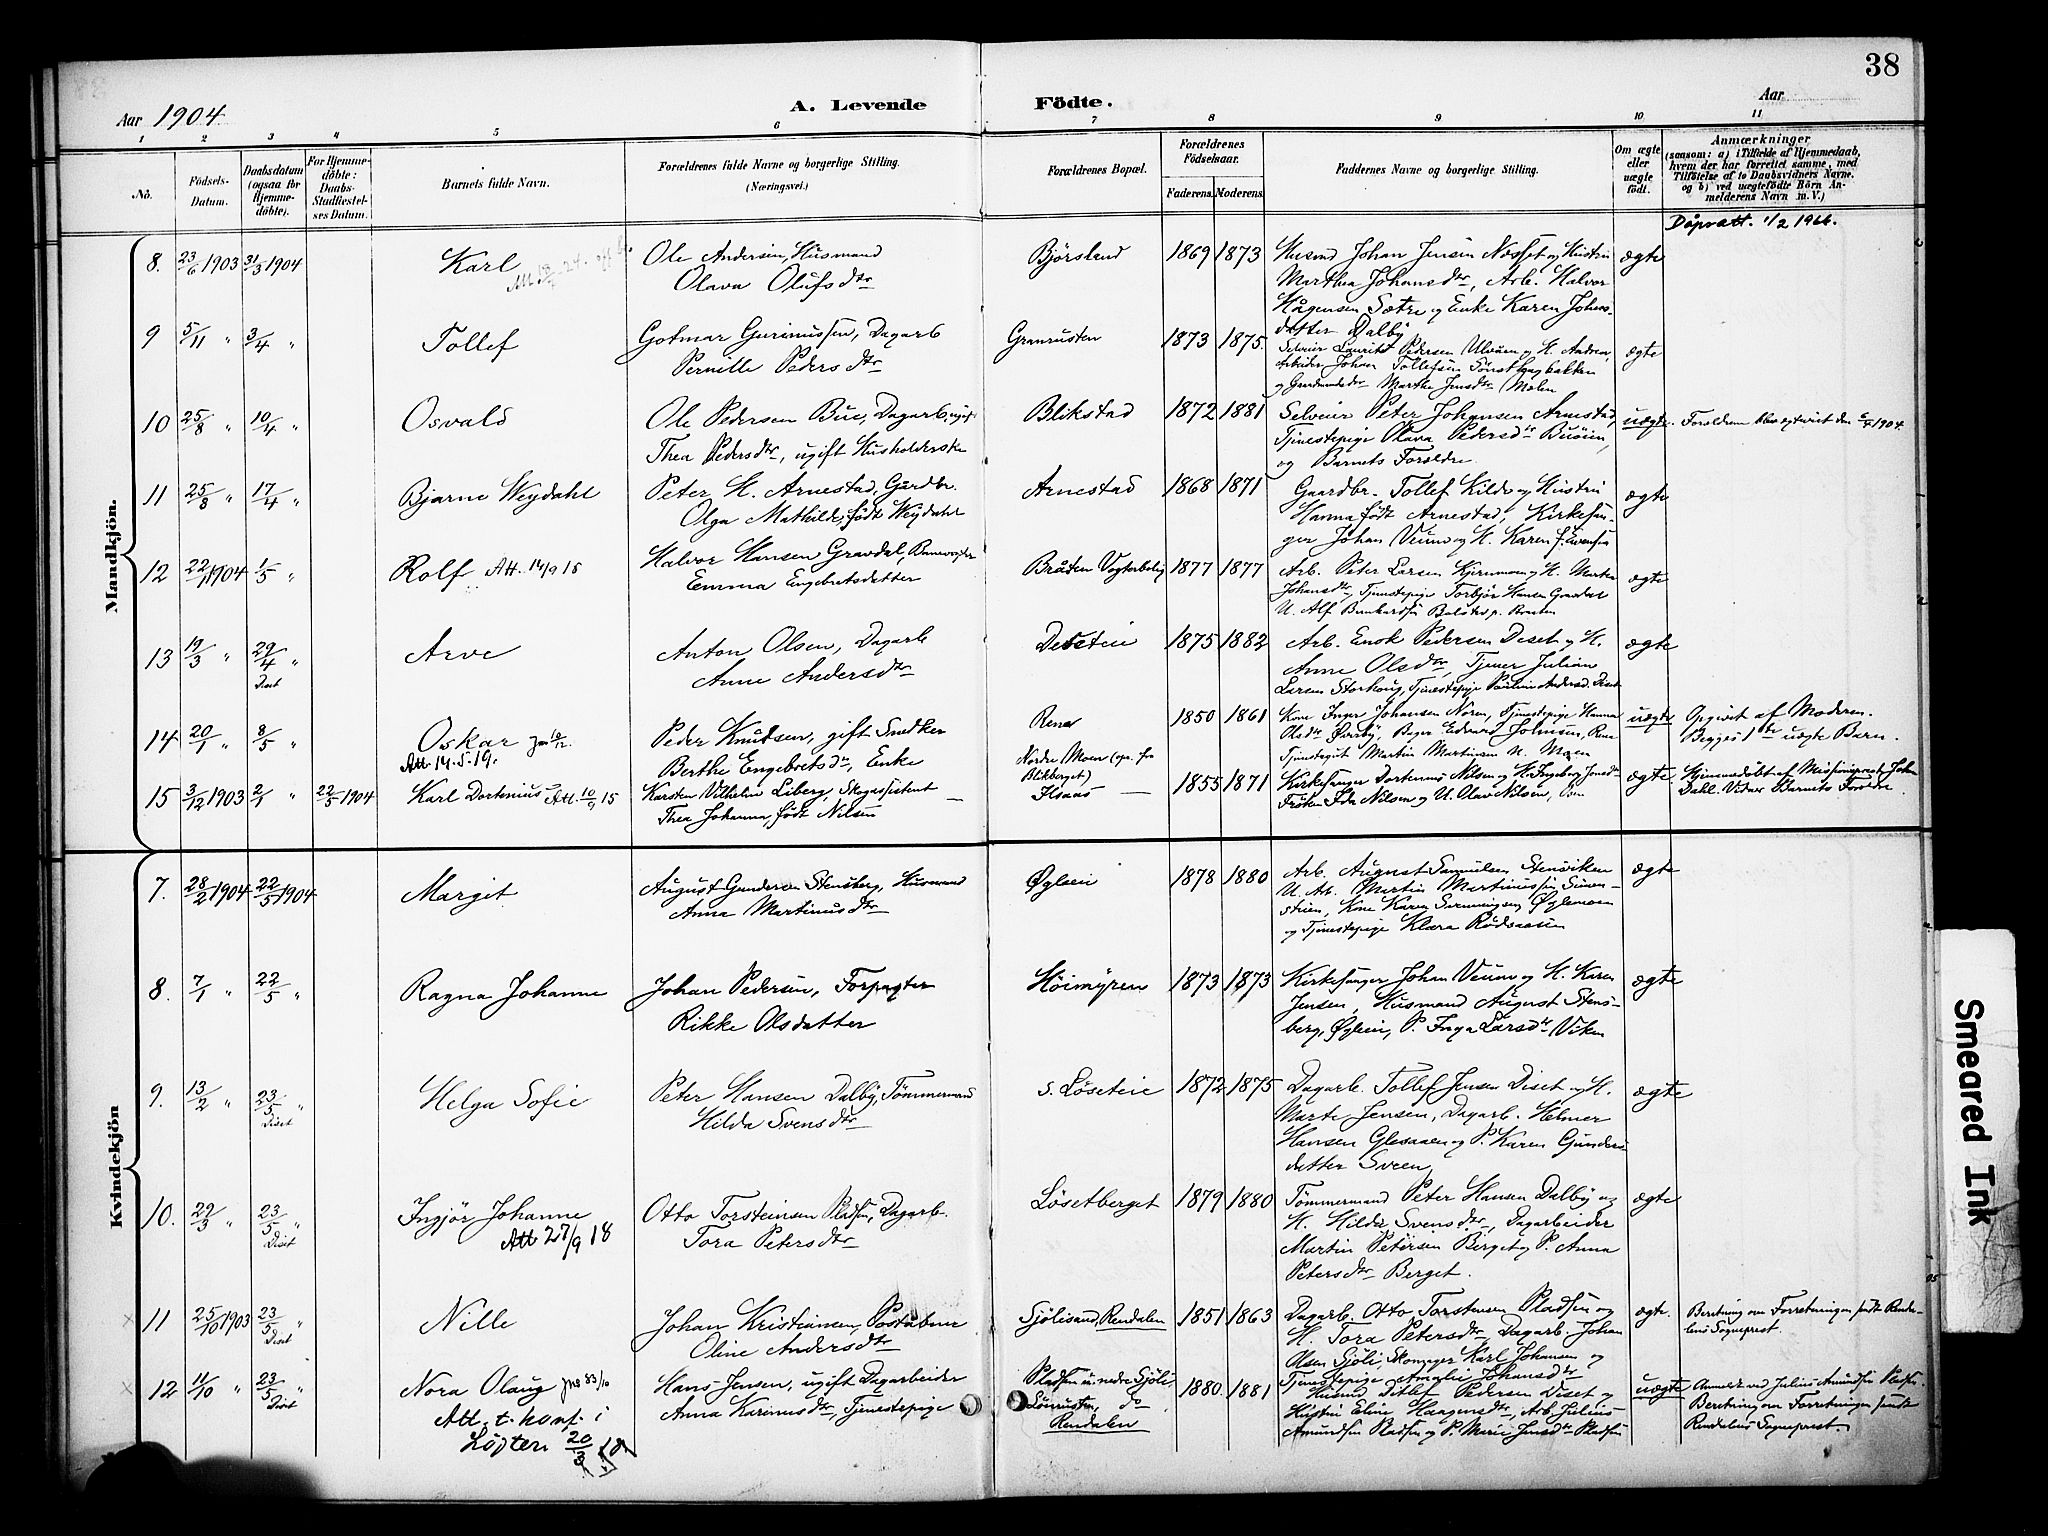 38
Aar 1904
A. Levende Födte.
Aar
1 2 3 4 5 6 7 8 9 10 11
No.
Födsels-Datum.
Daabsdatum (ogsaa for Hjemme-döbte).
For Hjemme-döbte: Daabs-Stadfæstel-ses Datum.
Barnets fulde Navn.
Forældrenes fulde Navne og borgerlige Stilling.
(Næringsvei.)
Forældrenes Bopæl.
Forældrenes Födselsaar.
Faderens. Moderens.
Faddernes Navne og borgerlige Stilling.
Om ægte eller uægte født.
Anmærkninger
(saasom: a) i Tilfælde af Hjemmedaab, hvem der har forrettet samme, med Tilföielse af to Daabsvidners Navne, og b) ved uægtefödte Börn Anmelderens Navn m. V.)
Dåpsatt. 1/2 1966.
Mandkjön.
8. 23/6 1903 31/3 1904 Karl
Ole Andersen, Husmand
Olava Olufsdtr
Bjørslund 1869 1873
Husmd Johan Jensen Næsset og Hustru
Marthea Johansdtr, Arb. Halvor
Hågensen Sætre og Enke Karen Johans-
datter Dalby
ægte
9 5/11 " 3/4 " Tollef
Gotmar Gurinussen, Dagarb
Pernille Pedersdtr
Granrusten 1873 1875.
Selveier Laurits Pedersen Ulvåen og H. Andrea,
Arbeider Johan Tollefsen
og Marthe Jensdtr Moløn
ægte
10 25/8 " 10/4 " Osvald
Ole Pedersen Bue, Dagarb, ugift
Thea Pedersdtr, ugift Husholderske
Blikstad 1872 1881
Selveier Peter Johansen Arnestad,
Tjenestepige Olava Pedersdtr
og Barnets Forældre
uægte.
11 25/8 " 17/4 " Bjarne Weydahl
Peter H. Arnestad, Gårdbr.
Olga Mathilde, født Weydahl
Arnestad 1868 1871
Gaardbr. Tollef Kilde og Hustru
Hanna født Arnestad, Kirkesan-
ger Johan Veum og H. Karen f. Evensen
ægte
12 22/1 1904 1/5 " Rolf. Att. 14/9 18
Halvor Hansen Gravdal, Banevogter
Emma Engebretsdatter
Bråten Vogterbolig 1877 1877
Arb. Peter Larsen Kjernmoen og H. Marte
Johansdtr, Tjenestepige Torbjør Hansen Gravdal
ægte
13 19/3 " 29/4 Diset " Arve
Anton Olsen, Dagarb
Anne Andersdtr
Deseteie 1875 1882
Arb. Enok Pedersen Diset og H.
Anne Olsdtr, Tjener Julian
Larsen Storhaug, Tjenestepige Pauline Andersd. Diset
ægte
14 20/1 " 8/5 " Oskar
Att. 14.5.19.
Peder Knudsen, gift Snedker
Berthe Engebretsdtr, Enke
Rena
Nordre Moen (opr. fra
Blikberget)
1850 1861
Kone Inger Johansen Noren, Tjenestepige Hanna
Olsdtr Øvreby, Bager Edvard Johnsen, Rena
Tjenestegut Martin Martinsen n. Moen
uægte
Opgivet af Moderen.
Begges 1ste uægte Barn.
15 3/12 1903 2/1 " 22/5 1904 Karl Dortenius Att. 10/9 15
Karsten Vilhelm Liberg, Skogassistent
Thea Johanna, født Nilsen
1855 1871
Kirkesanger Dortenius Nilsen og H. Ingeborg Jonsdtr
Frøken Ida Nilsen og U. Olav Nilsen,
ægte
Hjemmedøbt af Missionsprest John
Dahl. Vidner Barnets Forældre.
Kvindekjön
7. 28/2 1904 22/5 1904 Margit
August Gundersen Stensberg, Husmand
Anna Martinusdtr
Øgleeie 1878 1880
Arb. August Samuelsen Stensviken
U. Arb. Martin Martinussen Simen-
støen, Kone Karen Svenningsen Øglemoen
og Tjenestepige Klara Rødsaasen
ægte
8. 7/1 " 22/5 " Ragna Johanne
Johan Pedersen, Forpagter
Rikke Olsdatter
Høimyren 1873 1873
Kirkesanger Johan Veum og H. Karen
Jensen, Husmand August Stens-
berg, Øgleeie, P. Inga Larsdtr Viken
ægte
9. 13/2 " 23/5 Diset " Helga Sofie
Peter Hansen Dalby, Tømmermand
Hilda Svensdtr
s. Løseteie 1872 1875
Dagarb. Tollef Jensen Diset og H.
Marte Jensen, Dagarb. Helmer
Hansen Glesaaen og P. Karen Gunders-
datter Sveen,
ægte
10. 29/3 " 23/5 Diset Ingjør Johanne
Att 27/9 18
Otto Torsteinsen Pladsen, Dagarb.
Tora Petersdtr
Løsetberget 1879 1880
Tømmermand Peter Hansen Dalby og
H. Hilda Svensdtr, Dagarbeider
Martin Petersen Berget og P. Anna
Petersdtr Berget.
ægte
11 25/10 1903 23/5 Diset " Nille
Johan Kristiansen, Postaabner
Oline Andersdtr
Sjölisand, Rendalen 1851 1863
Dagarb. Otto Torstensen Pladsen og
H. Tora Petersdtr, Dagarb. Johan
Olsen Sjöli, Skomager Karl Johansen og
Tjenestepige Amalie Johansdtr
ægte.
Beretning om Forretningen sendt Renda-
lens Sogneprest.
12 11/10 " 23/5 Diset " Nora Olaug
Att. t. konf. i
Løpten 20/3 18
Hans Jensen, ugift Dagarbeider
Anna Karinusdtr, Tjenestepige
Pladsen u. nedre Sjöli
Lönrusten, do
Rendalen
1880 1881
Husmd Ditlef Pedersen Diset og
Hustru Eline Haagensdtr, Arb. Julius
Amundsen Pladsen og P. Marie Jensdtr Pladsen
uægte
Anmeldt ved Julius Amundsen Pladsen.
Beretning om Forretningen sendt
Rendalens Sogneprest.
Smeared Ink